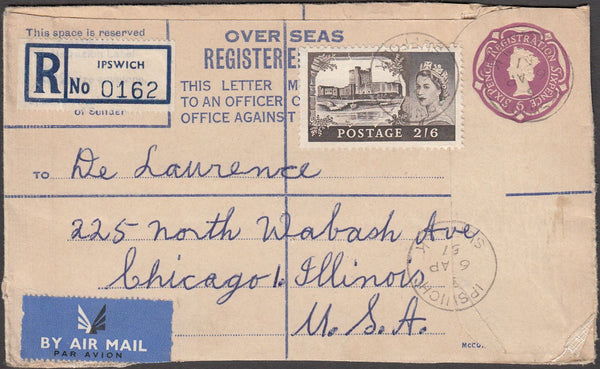 This space is reserved
OVER SEAS
REGISTERE
R IPSWICH
No 0162
of Sender
THIS LETTER M
TO AN OFFICER O
OFFICE AGAINST
POSTAGE 2/6
SIX PENCE REGISTRATION SIXPENCE
TO De Laurence
225 North Wabash Ave
Chicago 1. Illinois
U.S.A.
IPSWICH
6 AP
57
BY AIR MAIL
PAR AVION
McCo.